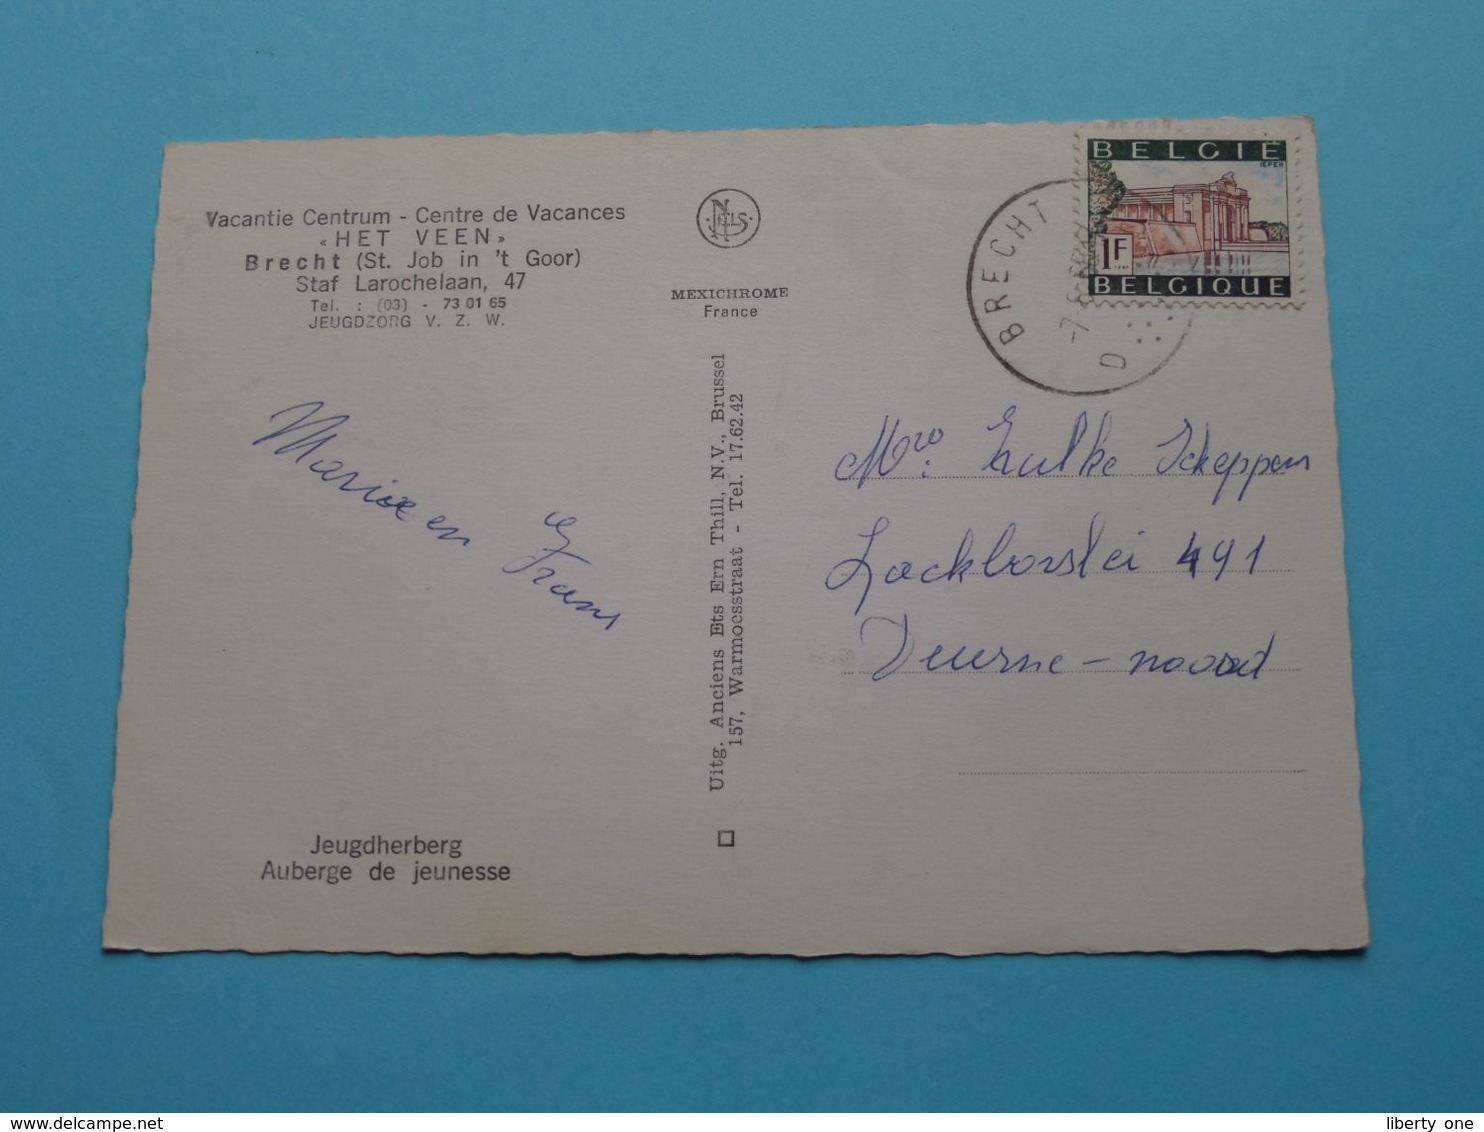 Vacantie Centrum - Centre de Vacances
« HET VEEN »
Brecht (St. Job in 't Goor)
Staf Larochelaan, 47
Tel. : (03) - 73 01 65
JEUGDZORG V. Z. W.
Marise en Frans
Jeugdherberg
Auberge de jeunesse
NELS
MEXICHROME
France
Uitg. Anciens Ets Ern Thill, N.V., Brussel
157, Warmoesstraat - Tel. 17.62.42
BELGIË
IEPER
1F
BELGIQUE
BRECHT
-7
D
Mvo. Hulke Scheppens
Lackborslei 491
Deurne - noord
delcampe.net
liberty one